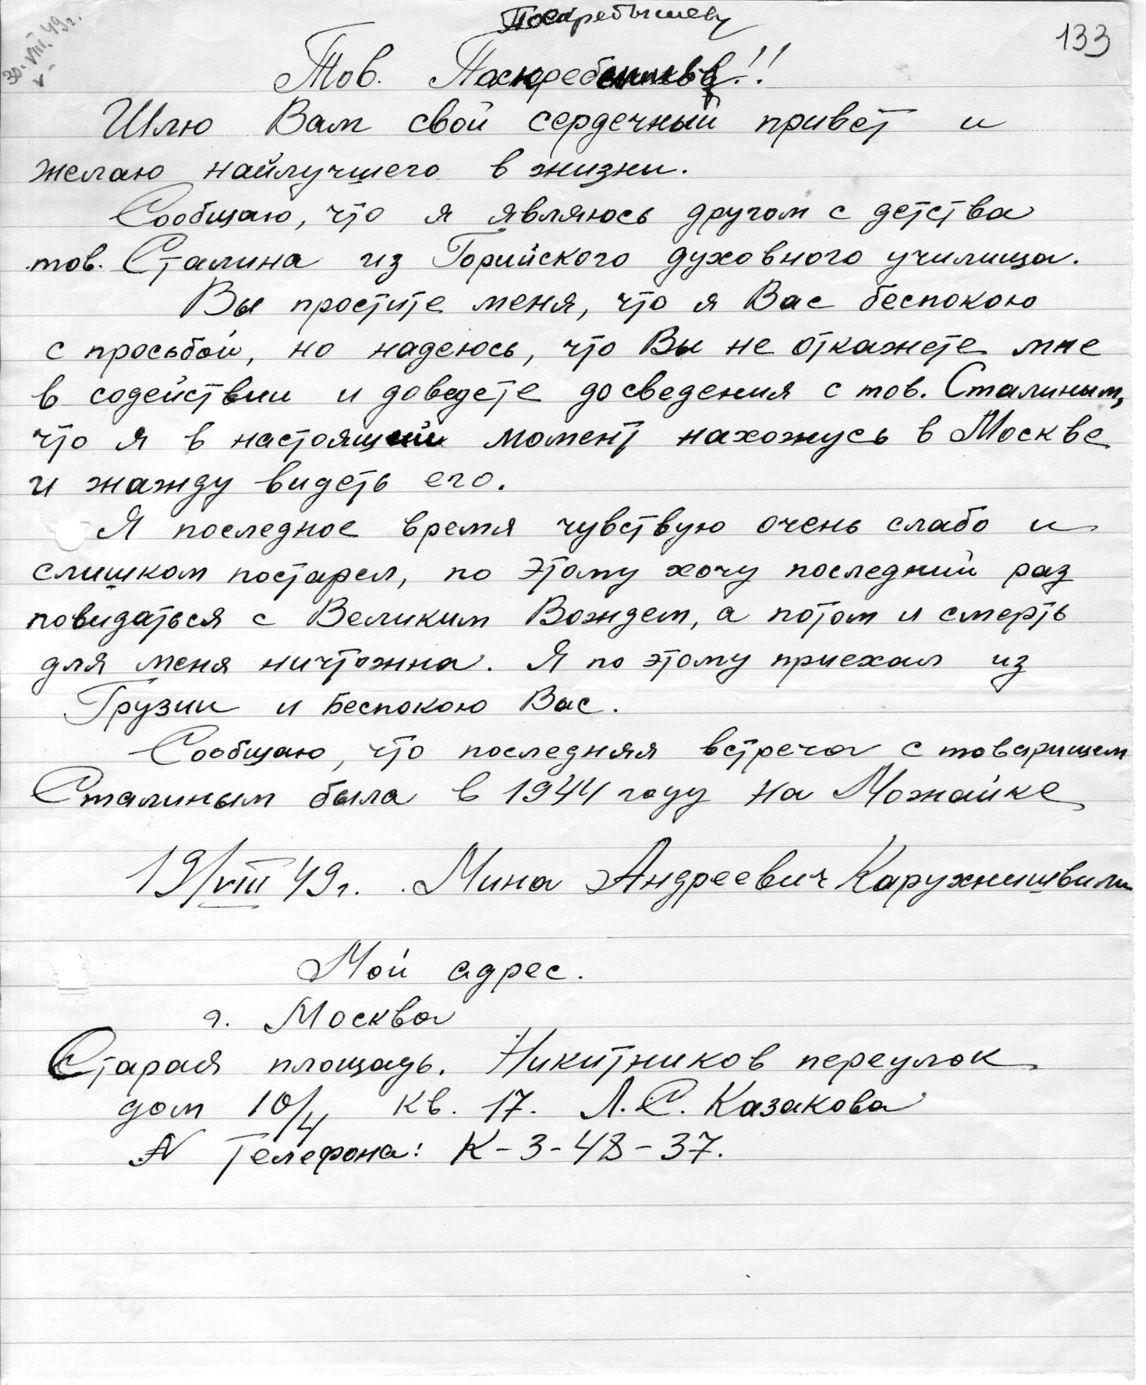 30.VIII.49г.
133
Поскребышеву
Тов. !!
Шлю Вам свой сердечный привет и
желаю найлучшего в жизни.
Сообщаю, что я являюсь другом с детства
тов. Сталина из Горийского духовного училища.
Вы простите меня, что я Вас беспокою
с просьбой, но надеюсь, что Вы не откажете мне
в содействии и доведете до сведения с тов. Сталиным,
что я в настоящий момент нахожусь в Москве
и жажду видеть его.
Я последное время чувствую очень слабо и
слишком постарел, по этому хочу последний раз
повидаться с Великим Вождем, а потом и смерть
для меня ничтожна. Я по этому приехал из
Грузии и беспокою Вас.
Сообщаю, что последняя встреча с товарищем
Сталиным была в 1944 году на Можайке
19/VIII 49г. Мина Андреевич Каружнишвили
Мой адрес.
г. Москва
Старая площадь. Никитников переулок
дом 10/4 кв. 17. Л.С. Казакова
N Телефона: К-3-48-37.